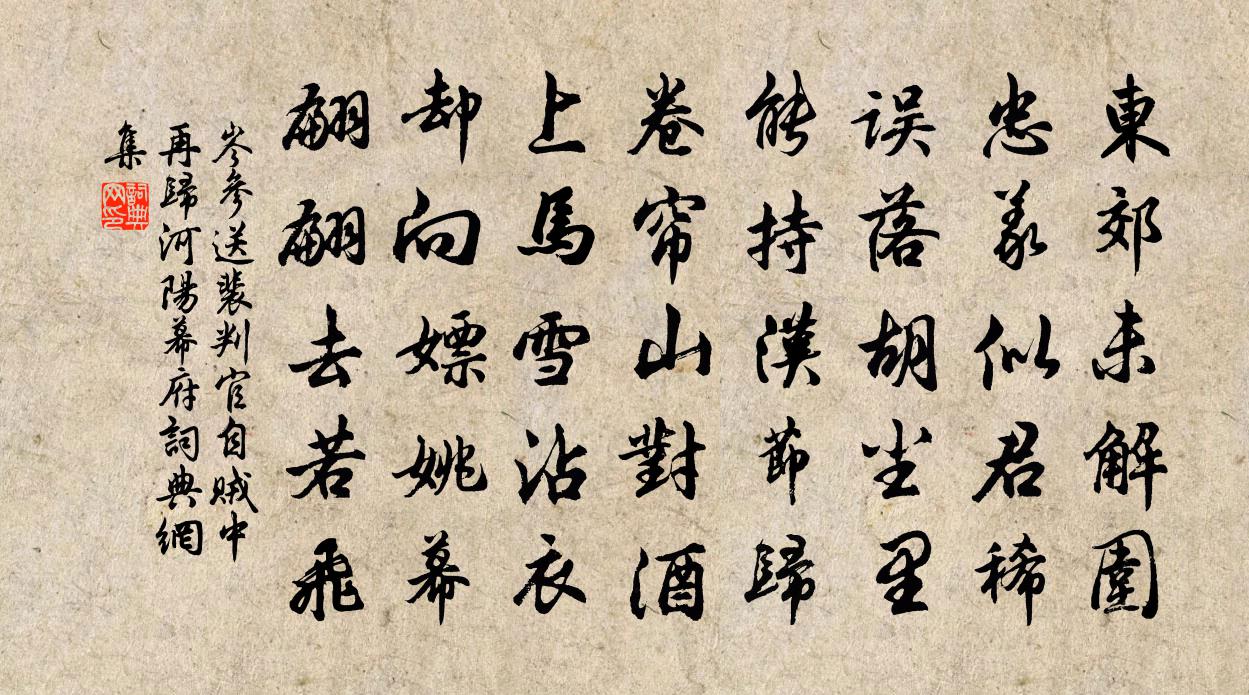 東郊未解圍
忠義似君稀
误落胡尘里
能持漢節歸
卷帘山對酒
上馬雪沾衣
却向嫖姚幕
翩翩去若飛
岑參送裴判官自贼中
再歸河陽幕府詞典網
集
詞典网印